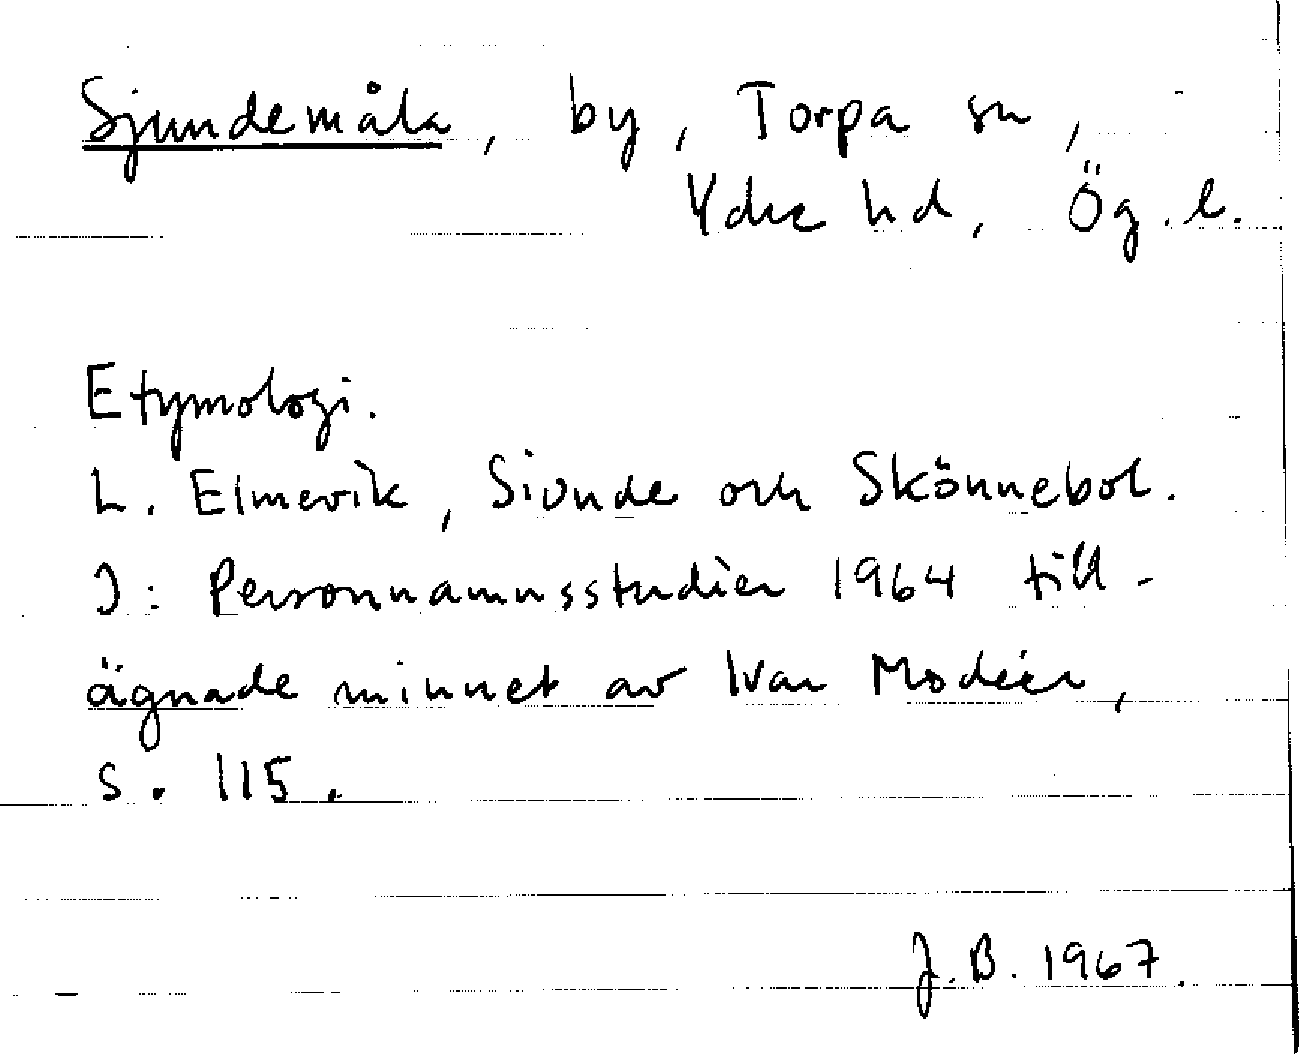 Sjundemåla, by, Torpa sn,
Ydre hd, Ög. l.
Etymologi.
L. Elmevik, Siunde och Skönnebol.
I: Personnamnsstudier 1964 till-
ägnade minnet av Ivar Modéer,
s. 115.
J. B. 1967.